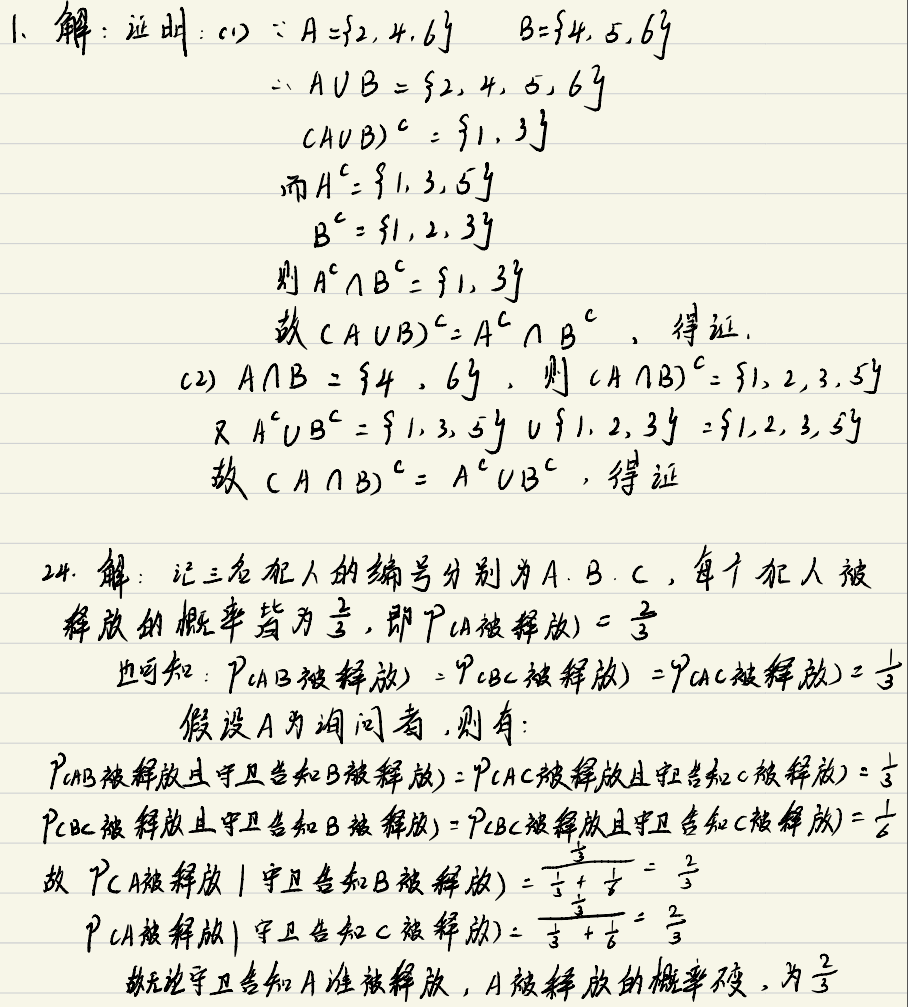 1. 解：证明：(1) ∵ A={2, 4, 6} B={4, 5, 6}
∴ A∪B = {2, 4, 5, 6}
(A∪B)ᶜ = {1, 3}
而 Aᶜ = {1, 3, 5}
Bᶜ = {1, 2, 3}
则 Aᶜ ∩ Bᶜ = {1, 3}
故 (A∪B)ᶜ = Aᶜ ∩ Bᶜ ，得证.
(2) A∩B = {4, 6}, 则 (A∩B)ᶜ = {1, 2, 3, 5}
又 Aᶜ∪Bᶜ = {1, 3, 5} ∪ {1, 2, 3} = {1, 2, 3, 5}
故 (A∩B)ᶜ = Aᶜ∪Bᶜ ，得证
24. 解：记三名犯人的编号分别为A. B. C，每个犯人被
释放的概率皆为 2/3，即 P(A被释放) = 2/3
也可知：P(AB被释放) = P(BC被释放) = P(AC被释放) = 1/3
假设A为询问者，则有：
P(AB被释放且守卫告知B被释放) = P(AC被释放且守卫告知C被释放) = 1/3
P(BC被释放且守卫告知B被释放) = P(BC被释放且守卫告知C被释放) = 1/6
故 P(A被释放 | 守卫告知B被释放) = (1/3)/(1/3 + 1/6) = 2/3
P(A被释放 | 守卫告知C被释放) = (1/3)/(1/3 + 1/6) = 2/3
故无论守卫告知A谁被释放，A被释放的概率不变，为 2/3